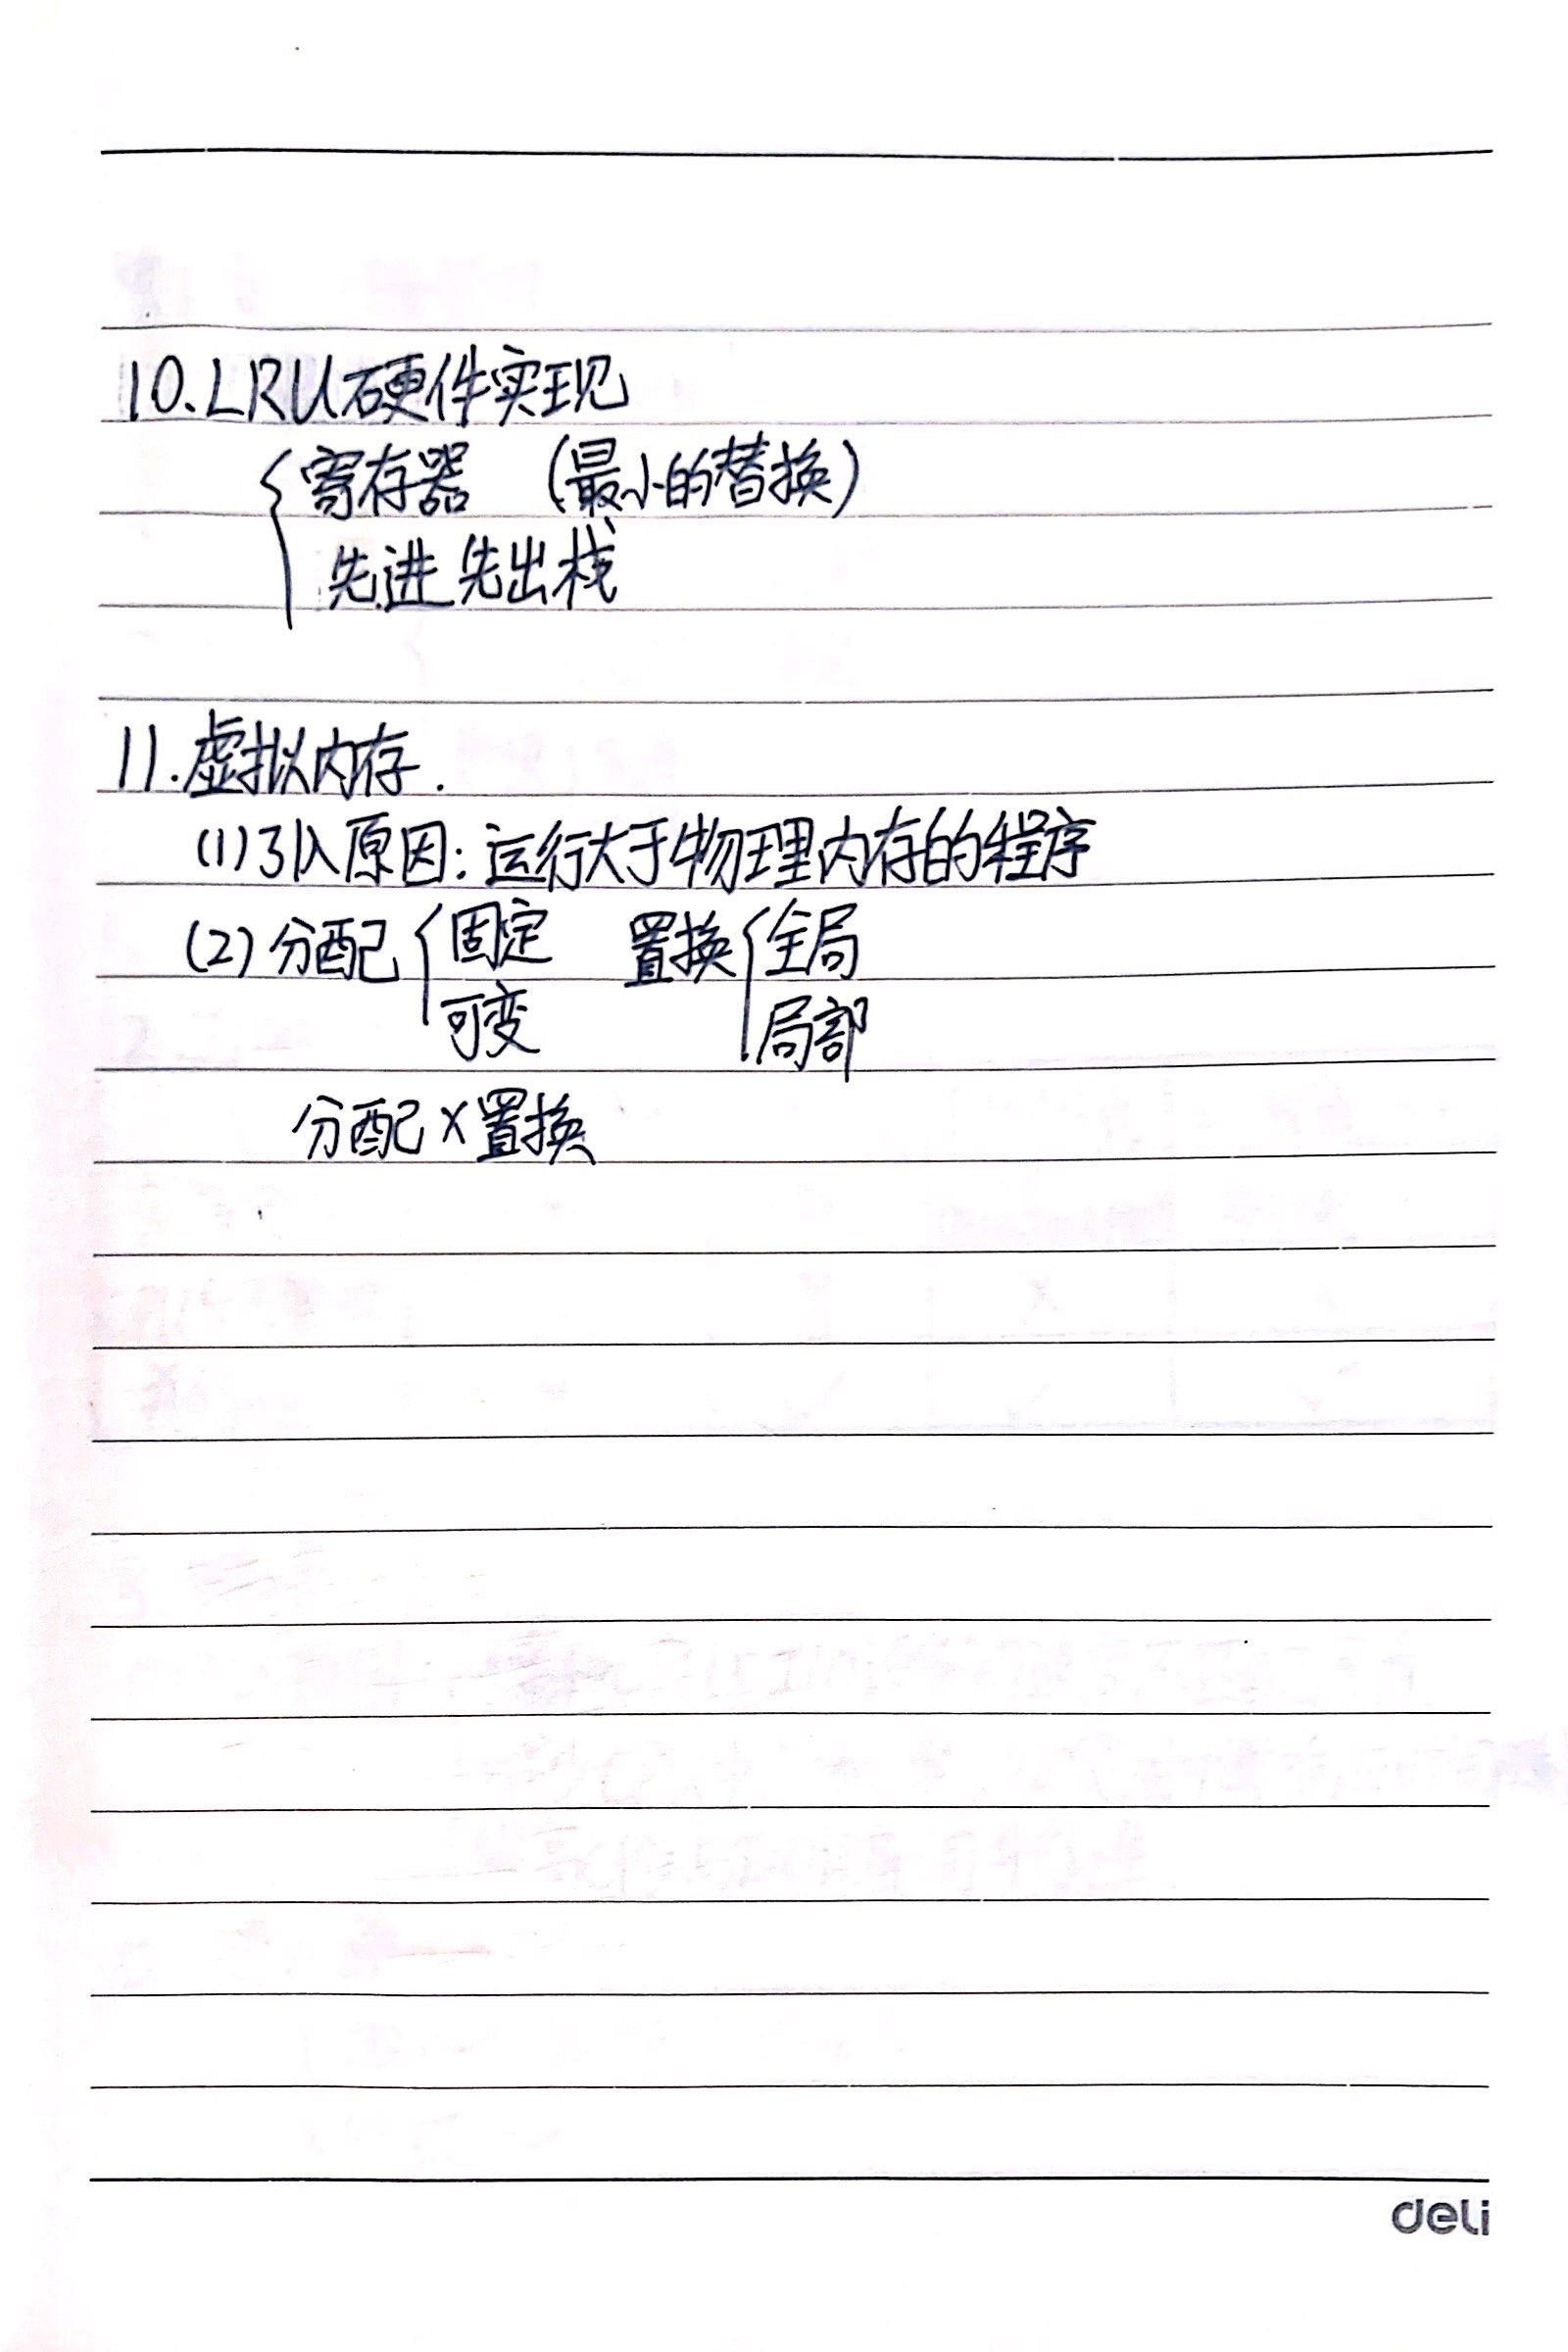 10.LRU硬件实现
寄存器 (最小的替换)
先进先出栈
11.虚拟内存.
(1)引入原因:运行大于物理内存的程序
(2)分配{固定 置换{全局
可变 局部
分配×置换
deli